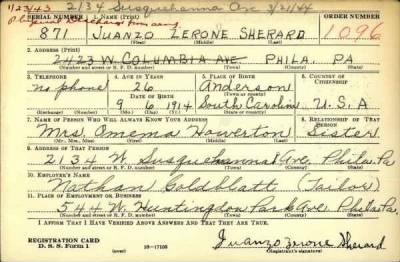 1/23/43 2134 Susquehanna Ave 3/21/44
SERIAL NUMBER 1. NAME (Print) ORDER NUMBER
871 JUANZO ZERONE SHERARD 1096
(First) (Middle) (Last)
2. ADDRESS (Print)
2423 W. COLUMBIA AVE. PHILA. PA
(Number and street or R. F. D. number) (Town) (County) (State)
3. TELEPHONE 4. AGE IN YEARS 5. PLACE OF BIRTH 6. COUNTRY OF CITIZENSHIP
no phone 26 Anderson
DATE OF BIRTH (Town or county)
9 6 1914 South Carolina U.S.A
(Mo.) (Day) (Yr.) (State or country)
7. NAME OF PERSON WHO WILL ALWAYS KNOW YOUR ADDRESS 8. RELATIONSHIP OF THAT PERSON
Mrs. Omema Howerton Sister
(Mr., Mrs., Miss) (First) (Middle) (Last)
9. ADDRESS OF THAT PERSON
2134 W. Susquehanna Ave. Phila. Pa
(Number and street or R. F. D. number) (Town) (County) (State)
10. EMPLOYER'S NAME
Nathan Goldblatt (Tailor)
11. PLACE OF EMPLOYMENT OR BUSINESS
544 W. Huntingdon Park Ave. Phila Pa
(Number and street or R. F. D. number) (Town) (County) (State)
I AFFIRM THAT I HAVE VERIFIED ABOVE ANSWERS AND THAT THEY ARE TRUE.
REGISTRATION CARD
D. S. S. Form 1 (over) 16-17105 Juanzo Zerone Sherard
(Registrant's signature)